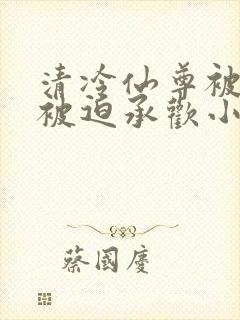 清冷仙尊被
被迫承歡小
蔡國慶